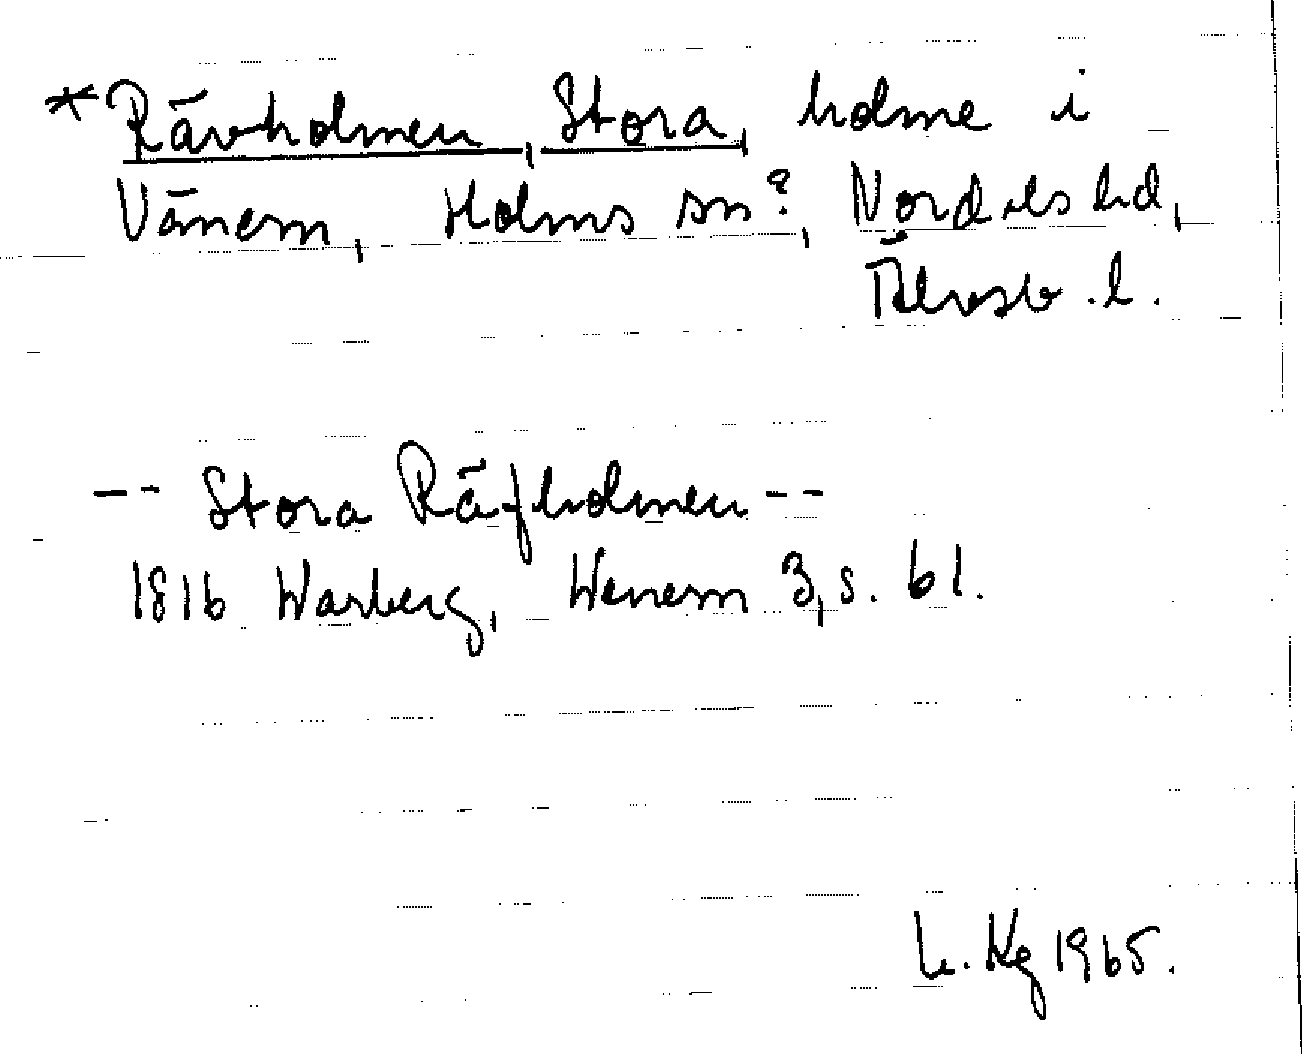 *Rävholmen, Stora, holme i
Vänern, Holms sn?, Nordals hd,
Älvsb. l.
-- Stora Räfholmen --
1816 Warberg, Wenern 3, s. 61.
L. Kg 1965.